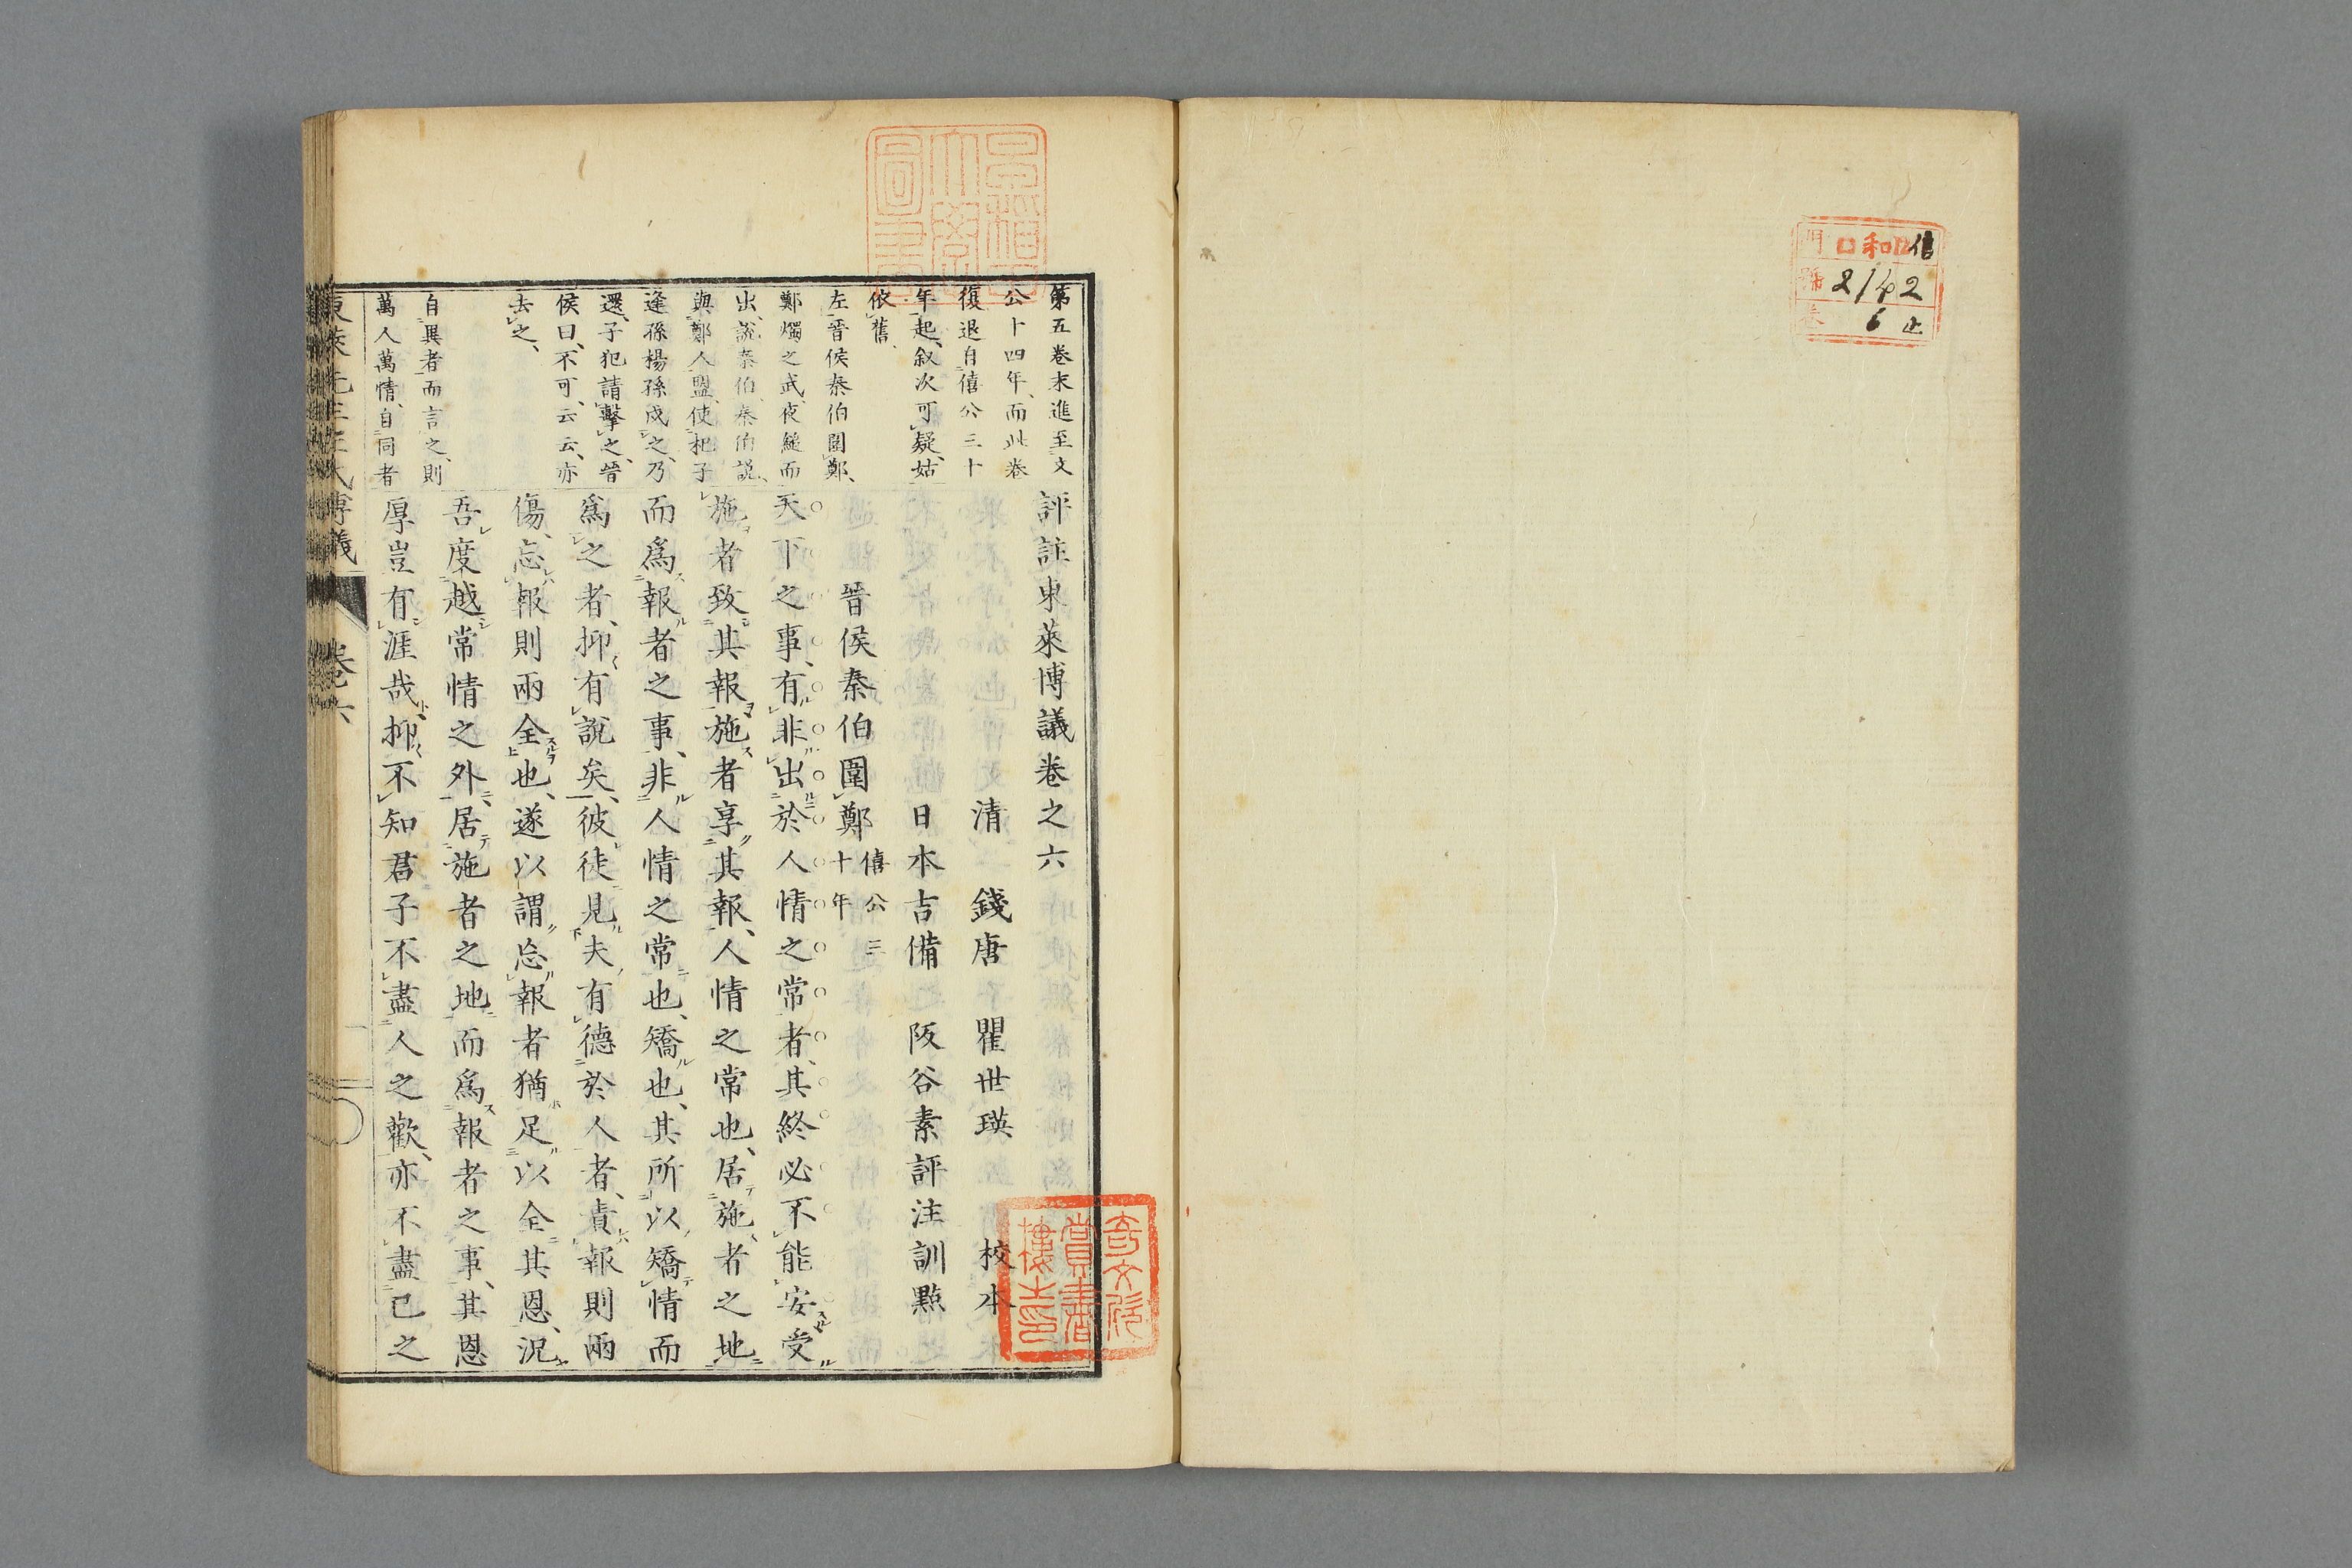 門 口 和 口 信
號 2142
卷 6 止
早稻田
大學
圖書
第五卷末進至文
公十四年、而此卷
復退自僖公三十
年起、叙次可疑、姑
依舊、
左、晉侯秦伯圍鄭、
鄭燭之武、夜縋而
出、說秦伯、秦伯說、
與鄭人盟、使杞子
逢孫楊孫戍之、乃
還、子犯請擊之、晉
侯曰、不可、云云、亦
去之、
自異者而言之、則
萬人萬情、自同者
評註東萊博議卷之六
清 錢唐 瞿世瑛 校本
日本吉備 阪谷素評注訓點
晉侯秦伯圍鄭 僖公三十年
天下之事、有非出於人情之常者、其終必不能安受
施者致其報施者享其報、人情之常也、居施者之地
而爲報者之事、非人情之常也、矯也、其所以矯情而
爲之者、抑有說矣、彼徒見夫有德於人者、責報則兩
傷、忘報則兩全也、遂以謂忘報者猶足以全其恩、況
吾度越常情之外、居施者之地而爲報者之事、其恩
厚豈有涯哉、抑不知君子不盡人之歡、亦不盡己之
東萊先生左氏博議 卷六
奇文欣
賞書
樓之印